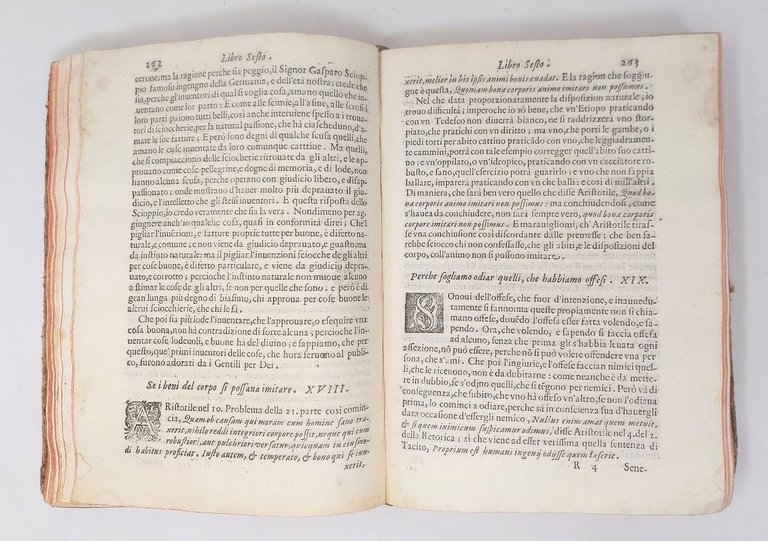 262 Libro Sesto.
cerone; ma la ragione perche sia peggio, il Signor Gasparo Sciop-
pio famoso ingengno della Germania, e dell'età nostra; crede che
sia, perche gl'inuentori di qual si voglia cosa, amano quello che in-
uentano come lor parto: E come alle scimie, all'asine, alle scrofi i
lor parti paiono tutti belli, così anche interuiene spesso a i troua-
tori di scioccherie, per la natural passione, che hà ciascheduno, d'a-
mare le sue fatture; E però sono degni di qualche scusa quelli, che
amano le cose inuentate da loro comunque cattiue. Ma quelli,
che si compiacciono delle sciocherie ritrouate da gli altri, e le ap-
prouano come cose pellegrine, e degne di memoria, e di lode, non
hanno alcuna scusa, perche operano con giudicio libero, e disap-
passionato; onde mostrano d'hauer molto più deprauato il giu-
dicio, e l'intelletto che gli stessi inuentori. E questa risposta dello
Scioppio, io credo veramente che sia la vera. Nondimeno per ag-
giugnere anch'io qualche cosa, quasi in conformità direi; Che'l
pigliar l'inuenzioni, e fatture proprie tutte per buone, è difetto na-
turale, e comune; e non viene da giudicio deprauato, e guasto, ma
da instinto naturale: ma il pigliar l'inuenzioni sciocche de gli altri
per cose buone, è difetto particulare, e viene da giudizio deprau-
ato, e corrotto, perche l'instinto naturale non muoue alcuno
a stimar le cose de gli altri, se non per quelle che sono. e però è di
gran lunga più degno di biasimo, chi approua per cose buone le
altrui sciocherie, che chi le fà.
Che poi sia più lode l'inuentare, che l'approuare, o eseguire vna
cosa buona, non hà contradizione di sorte alcuna; percioche l'in-
uentar cose lodeuoli, e buone hà del diuino; e sappiamo, che per
questo, que' primi inuentori delle cose, che hora seruono al publi-
co, furono adorati da i Gentili per Dei.
Se i beni del corpo si possano imitare. XVIII.
ARistotile nel 10. Problema della 21. parte così comin-
cia, Quam ob causam qui moram cum homine sano tra-
xerit, nihilo reddi integriori corpore possit, neque qui cum
robustiori, aut pulchriori versatur, quicquam in eiusmo-
di habitus proficiat. Iusto autem, & temperato, & bono qui se iun-
xerit,
Libro Sesto. 263
xerit, melior in his ipsis animi bonis euadat. E la ragion che soggiu-
gne è questa, Quoniam bona corporis animo imitari non possumus.
Nel che data proporzionatamente la disposizion naturale, io
trouo difficultà; imperoche io sò bene, che vn'Etiopo praticando
con vn Tedesco non diuerrà bianco, ne si raddrizzerà vno stor-
piato, che pratichi con vn diritto; ma vno, che porti le gambe, o i
piedi torti per abito cattiuo praticando con vno, che leggiadramen-
te cammini, potrà con tale esempio corregger quell'abito suo catti-
uo; e vn'oppilato, o vn'idropico, praticando con vn cacciatore ro-
busto, e sano, quell'esercizio potrà guarirlo; e vno che non sappia
ballare, imparerà praticando con vn che balli: e così di mill'altri.
Di maniera, che sarà ben vero quello che disse Aristotile, Quod bo-
na corporis animo imitari non possimus: ma conchiudendosi, come
s'haueua da conchiudere, non sarà sempre vero, quod bona corporis
corpore imitari non possimus. E marauigliomi, ch'Aristotile tiras-
se vna conchiusione così discordante dalle premesse; che ben sa-
rebbe sciocco chi non confessasse, che gli abiti, e le disposizioni del
corpo, coll'animo non si possono imitare.
Perche sogliamo odiar quelli, che habbiamo offesi. XIX.
SOnoui dell'offese, che fuor d'intenzione, e inauuedu-
tamente si fanno: ma queste propiamente non si chi-
amano offese, douendo l'offesa esser fatta volendo, e sa-
pendo. Ora, che volendo, e sapendo si faccia offesa
ad alcuno, senza che prima gli s'habbia leuata ogni
affezione, nō può essere, perche nō si può volere offendere vna per-
sona, che s'ami. Che poi l'ingiurie, e l'offese faccian nimici quel-
li, che le riceuono, non è da dubitarne: come neanche è da mette-
re in dubbio, se s'odino quelli, che si tēgono per nemici. Però và in
conseguenza, che subito, che vno hà offeso vn'altro, se non l'odiaua
prima, lo cominci a odiare, perche sà in conscienza sua d'hauergli
data occasione d'essergli nemico, Nullus enim amat quem metuit,
& si quem inimicum suspicamur odimus, disse Aristotele nel 4. del 2.
della Retorica; sì che viene ad esser verissima quella sentenza di
Tacito, Proprium est humani ingenij odisse quem laeserit.
R 4 Sene-